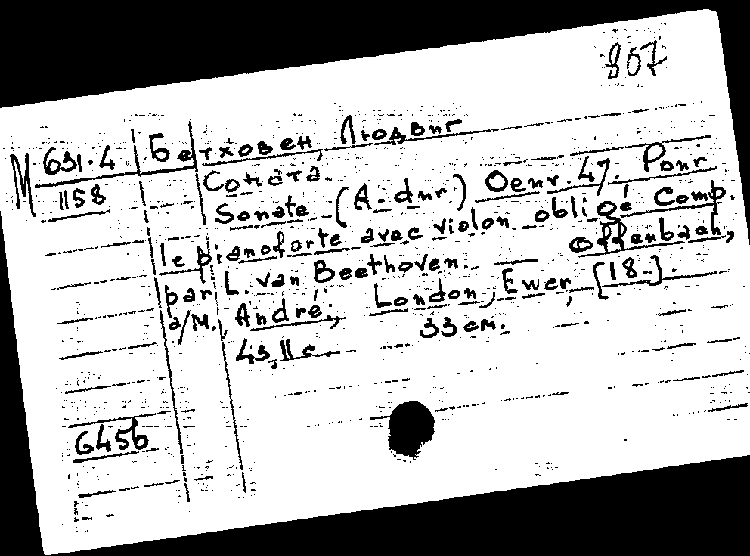 807
М 631.4 Бетховен, Людвиг
1158 Соната.
Sonate (A-dur) Oeuv. 47. Pour
le pianoforte avec violon obligé Comp.
par L. van Beethoven. — Offenbach,
a/M., André; London, Ewer, [18-].
43, 11 с. 33 см.
6456